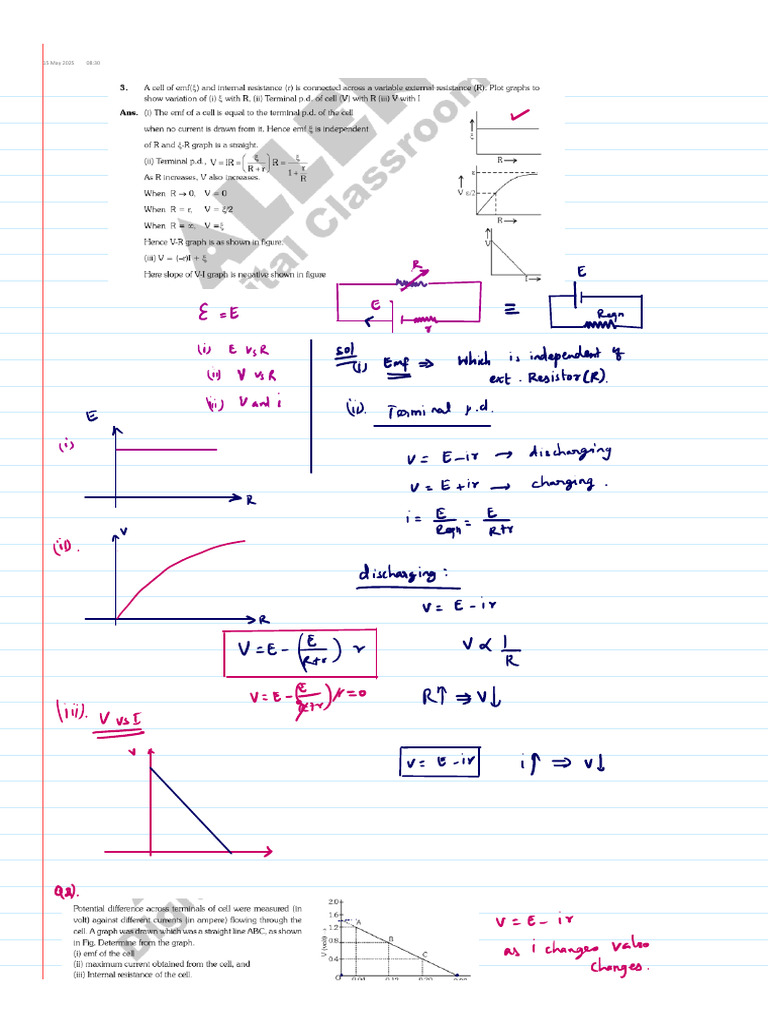 15 May 2025 08:30
3. A cell of emf(ξ) and internal resistance (r) is connected across a variable external resistance (R). Plot graphs to
show variation of (i) ξ with R, (ii) Terminal p.d. of cell (V) with R (iii) V with I
Ans. (i) The emf of a cell is equal to the terminal p.d. of the cell
when no current is drawn from it. Hence emf ξ is independent
of R and ξ-R graph is a straight.
(ii) Terminal p.d., V = IR = (ξ/(R + r)) R = ξ/(1 + r/R)
As R increases, V also increases.
When R → 0, V = 0
When R = r, V = ξ/2
When R = ∞, V = ξ
Hence V-R graph is as shown in figure.
(iii) V = (–r)I + ξ
Here slope of V-I graph is negative shown in figure
ξ
R
ε
V ε/2
R
V
I
ALLEN
Digital Classroom
R
E
r
≡
E
Reqn
Ɛ = E
(i) E vs R
(ii) V vs R
(iii) V and i
Sol
(i) Emf ⇒ Which is independent of
ext. Resistor (R).
(ii). Terminal p.d.
V = E – ir → discharging
V = E + ir → charging.
i = E/Reqn = E/(R+r)
(i)
E
R
(ii).
V
R
discharging :
V = E – ir
V = E – (E/(R+r)) r
V ∝ 1/R
V = E – (E/(R+r)) r = 0
R↑ ⇒ V↓
(iii). V vs I
V
V = E – ir
i↑ ⇒ V↓
Q2).
Potential difference across terminals of cell were measured (in
volt) against different currents (in ampere) flowing through the
cell. A graph was drawn which was a straight line ABC, as shown
in Fig. Determine from the graph.
(i) emf of the cell
(ii) maximum current obtained from the cell, and
(iii) Internal resistance of the cell.
2.0
1.6
1.2
0.8
0.4
0
V (volt)
A
B
C
0.04
0.12
0.20
V = E – ir
as i changes V also
changes.